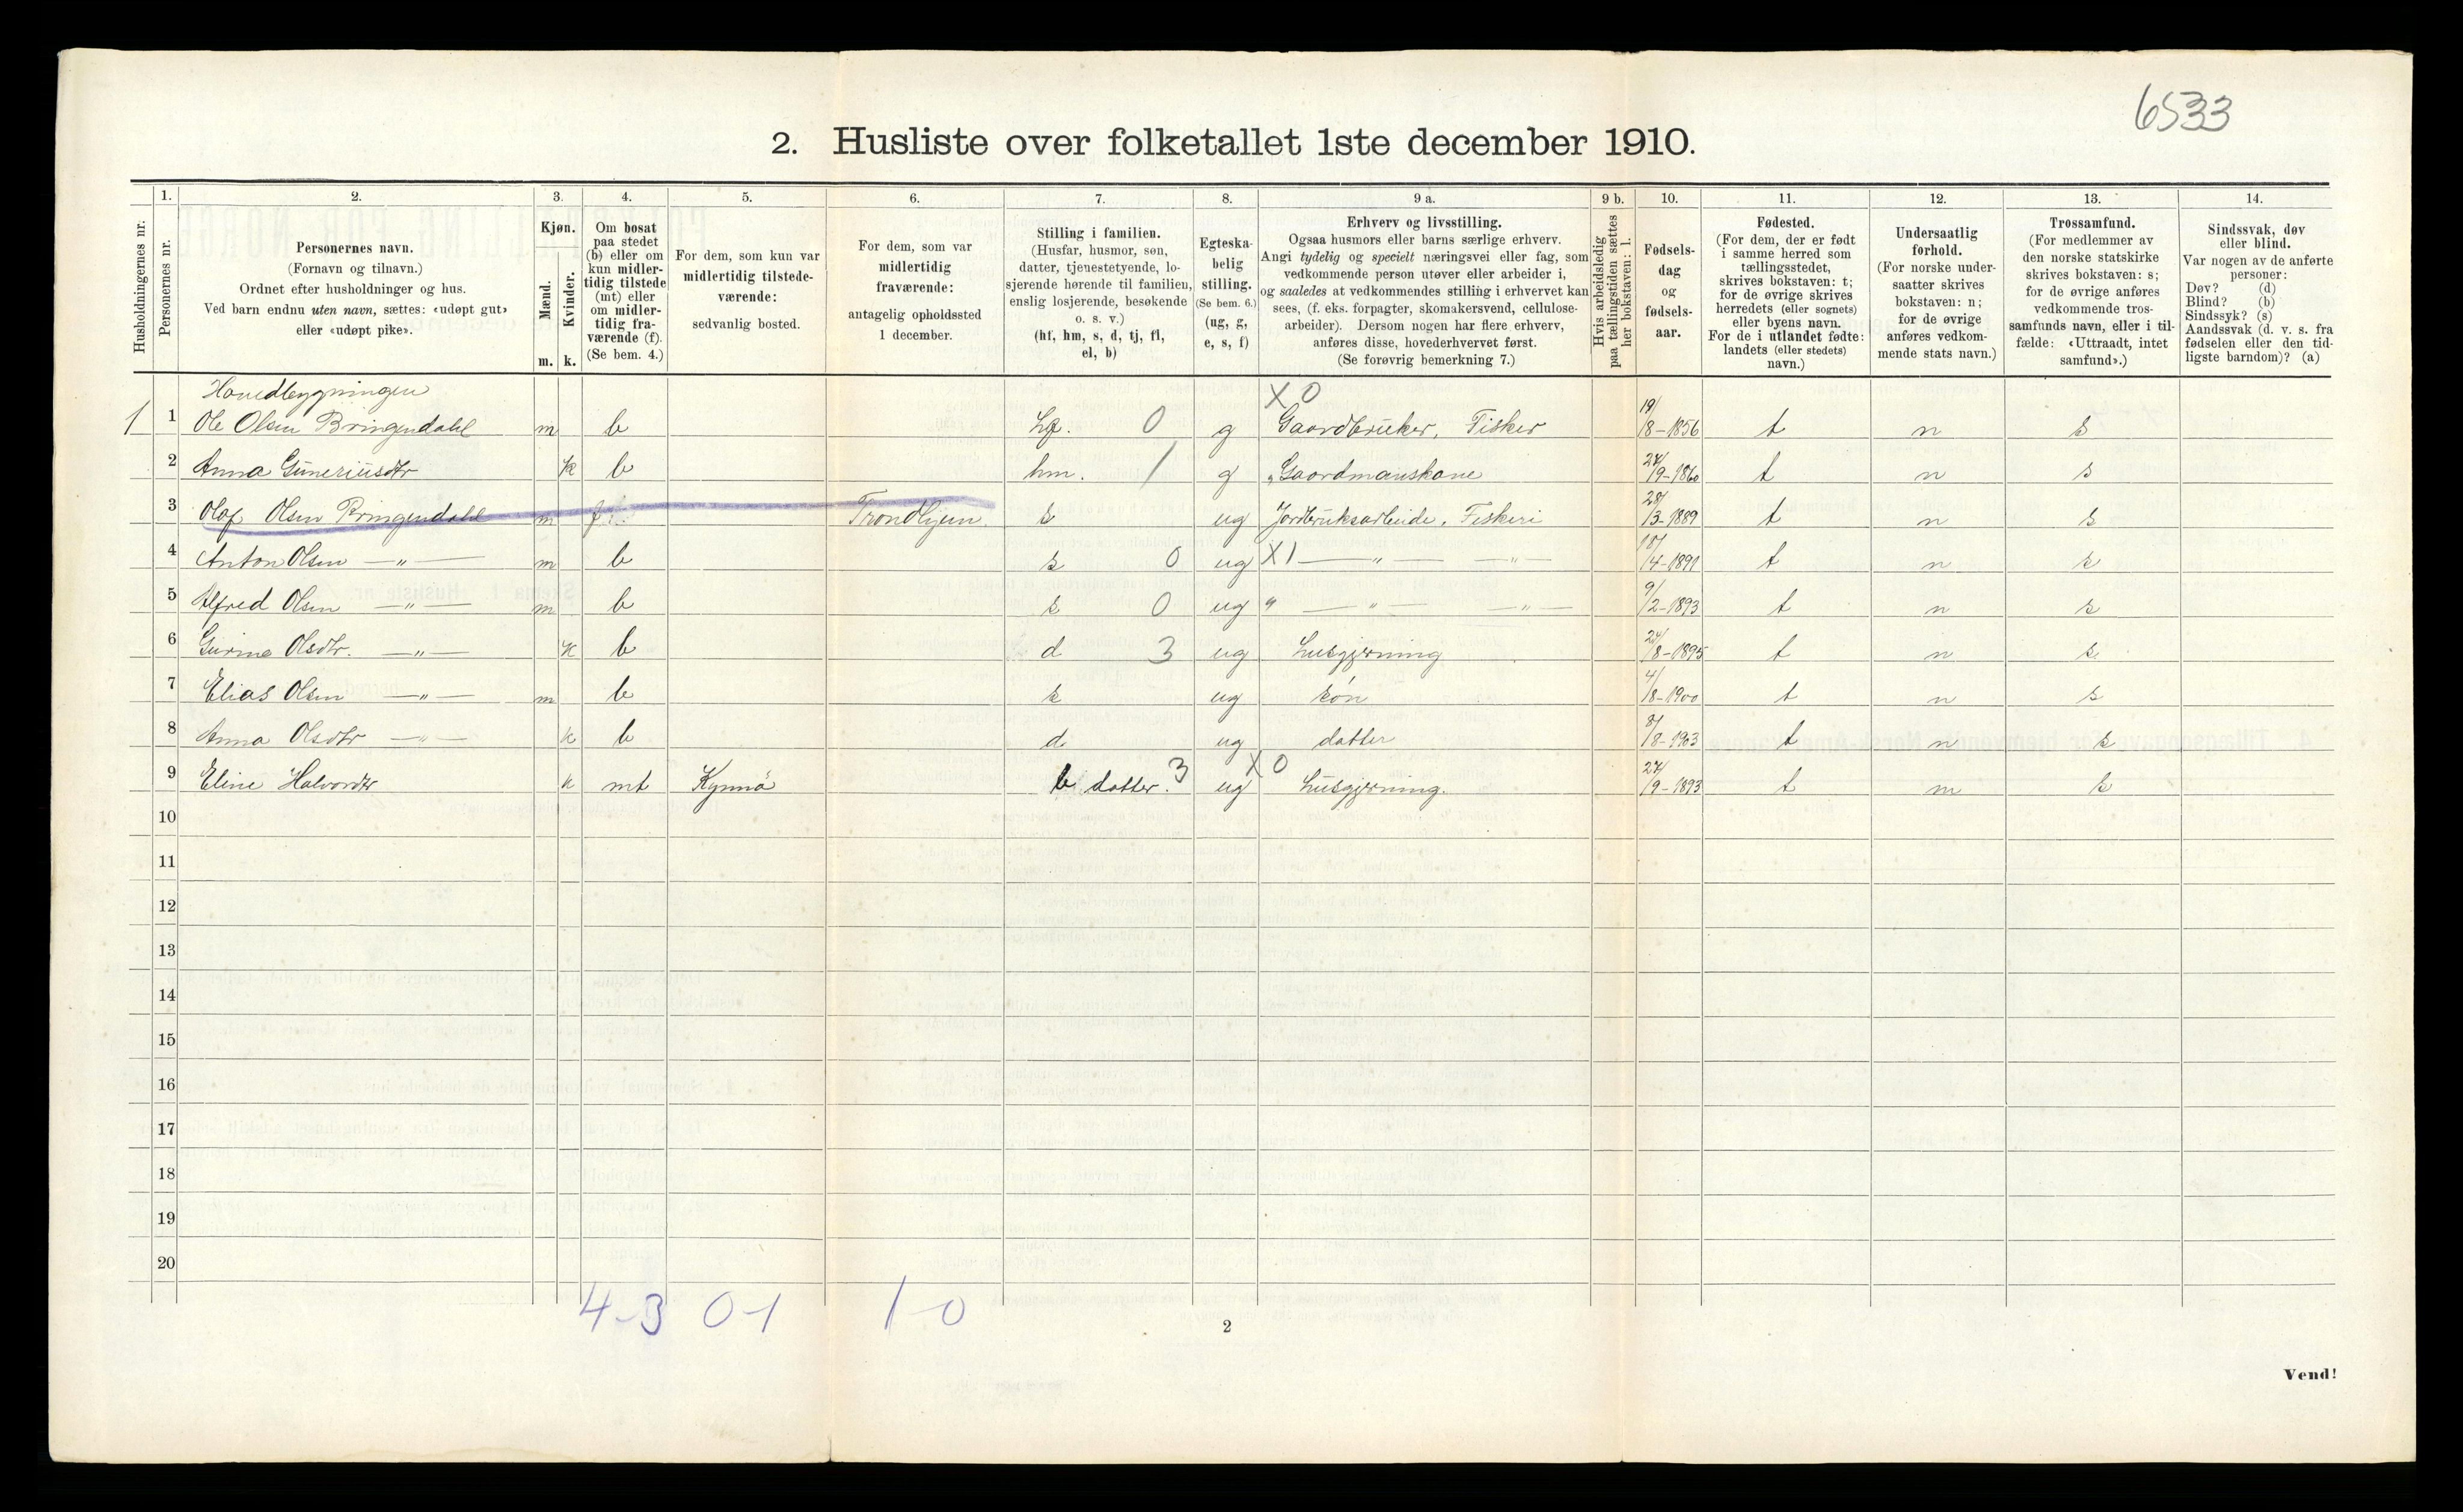 6533
2. Husliste over folketallet 1ste december 1910.
Husholdningernes nr.
1. Personernes nr.
2. Personernes navn.
(Fornavn og tilnavn.)
Ordnet efter husholdninger og hus.
Ved barn endnu uten navn, sættes: «udøpt gut»
eller «udøpt pike».
3. Kjøn.
Mænd. m.
Kvinder. k.
4. Om bosat
paa stedet
(b) eller om
kun midler-
tidig tilstede
(mt) eller
om midler-
tidig fra-
værende (f).
(Se bem. 4.)
5. For dem, som kun var
midlertidig tilstede-
værende:
sedvanlig bosted.
6. For dem, som var
midlertidig
fraværende:
antagelig opholdssted
1 december.
7. Stilling i familien.
(Husfar, husmor, søn,
datter, tjenestetyende, lo-
sjerende hørende til familien,
enslig losjerende, besøkende
o. s. v.)
(hf, hm, s, d, tj, fl,
el, b)
8. Egteska-
belig
stilling.
(Se bem. 6.)
(ug, g,
e, s, f)
9 a. Erhverv og livsstilling.
Ogsaa husmors eller barns særlige erhverv.
Angi tydelig og specielt næringsvei eller fag, som
vedkommende person utøver eller arbeider i,
og saaledes at vedkommendes stilling i erhvervet kan
sees, (f. eks. forpagter, skomakersvend, cellulose-
arbeider). Dersom nogen har flere erhverv,
anføres disse, hovederhvervet først.
(Se forøvrig bemerkning 7.)
9 b. Hvis arbeidsledig
paa tællingstiden sættes
her bokstaven: l.
10. Fødsels-
dag
og
fødsels-
aar.
11. Fødested.
(For dem, der er født
i samme herred som
tællingsstedet,
skrives bokstaven: t;
for de øvrige skrives
herredets (eller sognets)
eller byens navn.
For de i utlandet fødte:
landets (eller stedets)
navn.)
12. Undersaatlig
forhold.
(For norske under-
saatter skrives
bokstaven: n;
for de øvrige
anføres vedkom-
mende stats navn.)
13. Trossamfund.
(For medlemmer av
den norske statskirke
skrives bokstaven: s;
for de øvrige anføres
vedkommende tros-
samfunds navn, eller i til-
fælde: «Uttraadt, intet
samfund».)
14. Sindssvak, døv
eller blind.
Var nogen av de anførte
personer:
Døv? (d)
Blind? (b)
Sindssyk? (s)
Aandssvak (d. v. s. fra
fødselen eller den tid-
ligste barndom)? (a)
Hovedbygningen X 0
1 1 Ole Olsen Bringendahl m b hf. 0 g Gaardbruker, Fisker 19/8-1856 t n s
2 Anna Guneriusdtr k b hm. 1 g „Gaardmanskone 24/9-1860 t n s
3 Olaf Olsen Bringendahl m f Trondhjem s ug Jordbruksarbeide, Fiskeri 28/3-1889 t n s
4 Anton Olsen —„— m b s 0 ug X1 —„— —„— 18/4-1891 t n s
5 Alfred Olsen —„— m b s 0 ug „ —„— —„— 9/2-1893 t n s
6 Gurine Olsdtr. —„— k b d 3 ug husgjerning 24/8-1895 t n s
7 Elias Olsen —„— m b s ug søn 4/8-1900 t n s
8 Anna Olsdtr —„— k b d ug datter 8/8-1903 t n s
9 Eline Halvordtr k mt Kynnö b datter. 3 ug X 0 husgjerning. 27/9-1893 t n s
10
11
12
13
14
15
16
17
18
19
20
4-3 0-1 1-0
2
Vend!